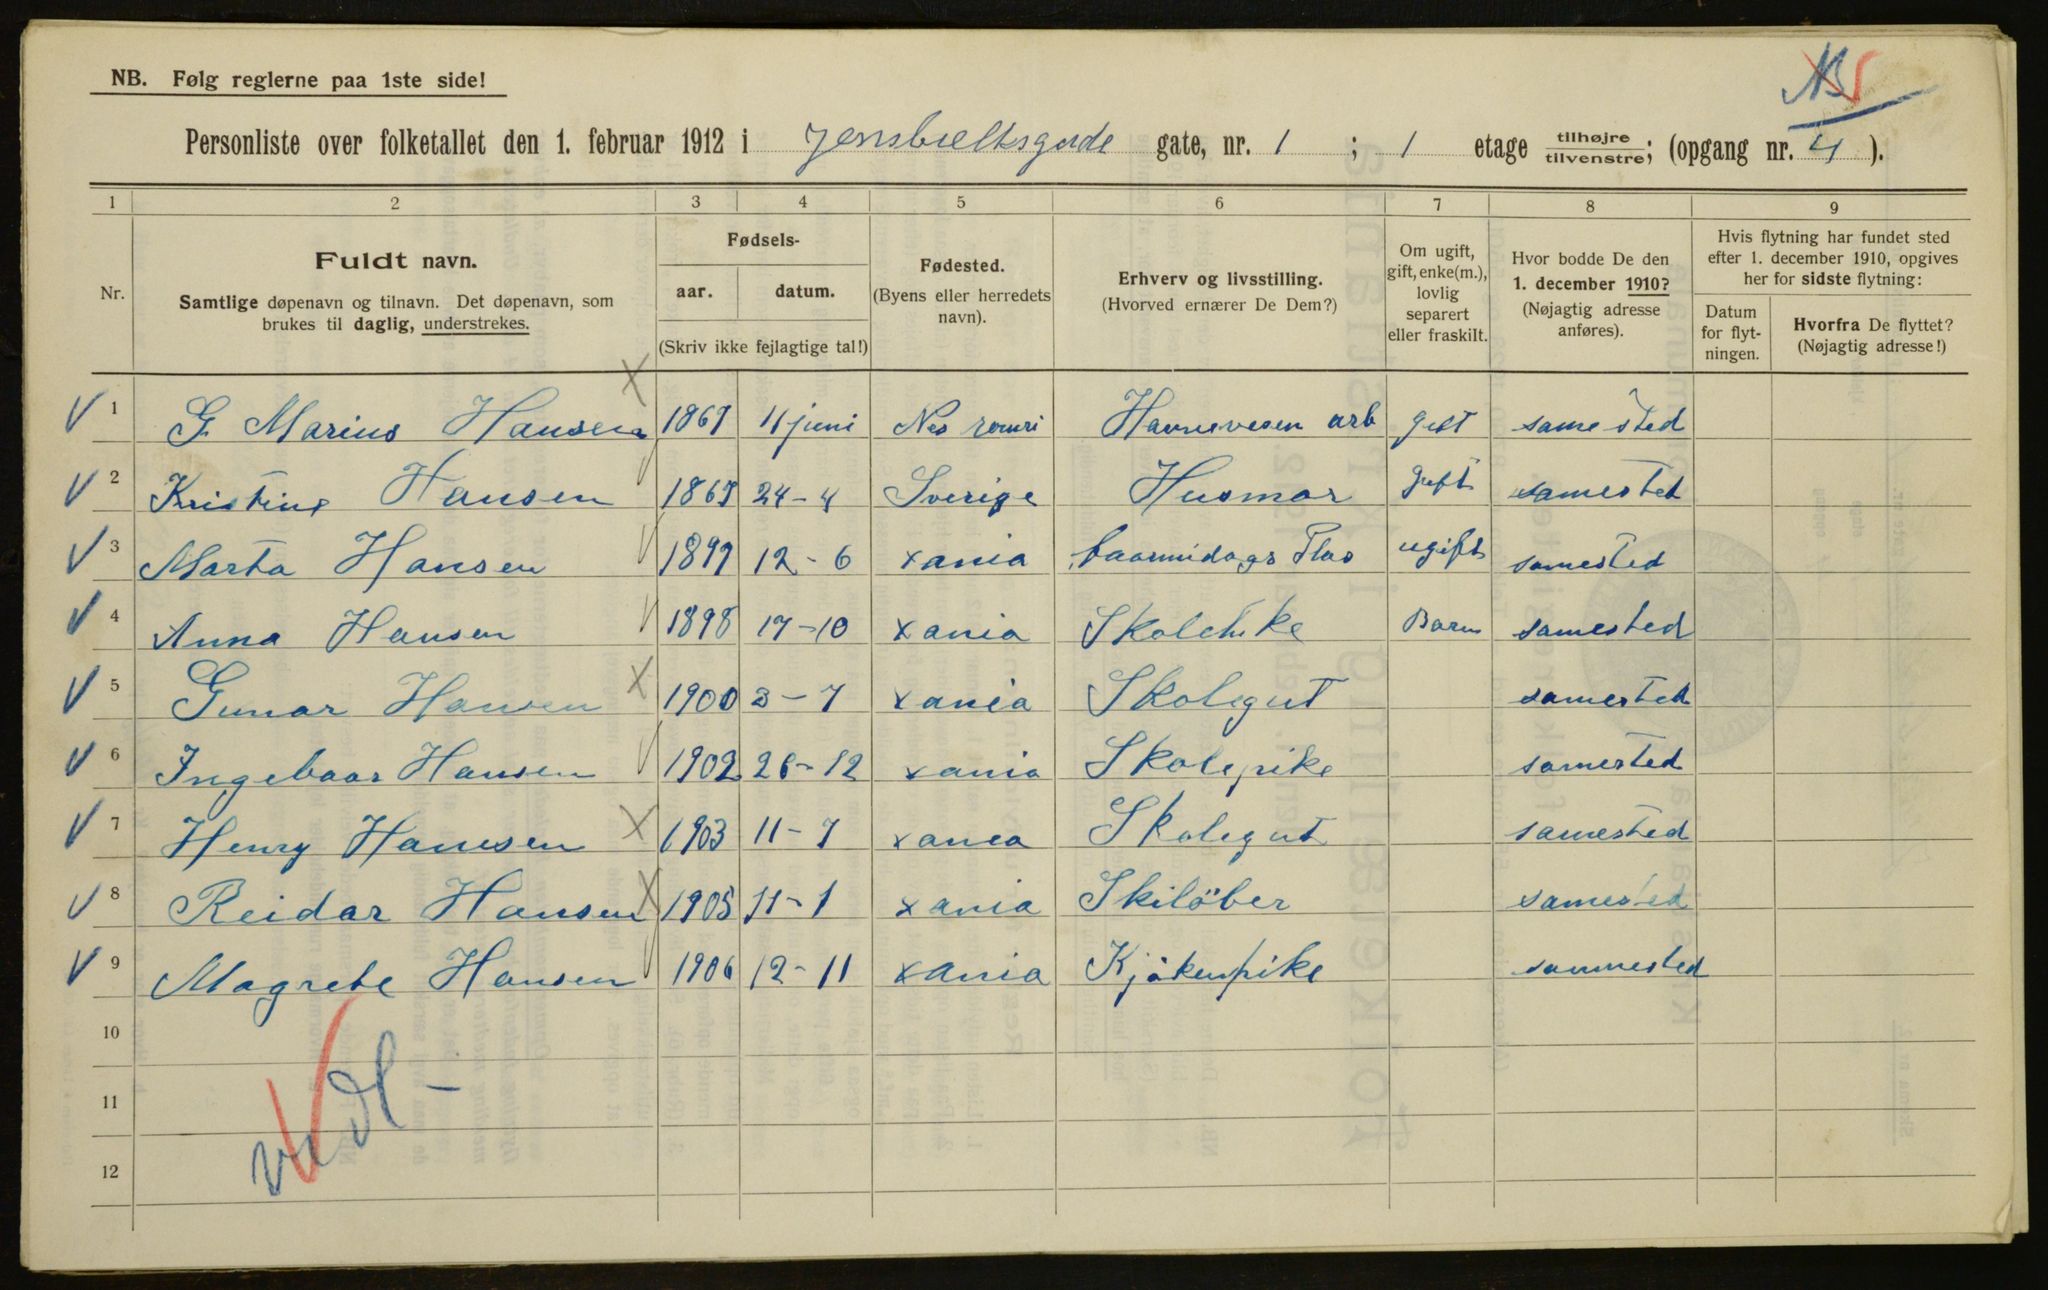 NB. Følg reglerne paa 1ste side!
NB
Personliste over folketallet den 1. februar 1912 i Jensbielksgade gate, nr. 1 ; 1 etage tilhøjre tilvenstre; (opgang nr. 4 ).
1 2 3 4 5 6 7 8 9
Nr.
Fuldt navn.
Samtlige døpenavn og tilnavn. Det døpenavn, som
brukes til daglig, understrekes.
Fødsels-
aar. datum.
(Skriv ikke fejlagtige tal!)
Fødested.
(Byens eller herredets
navn).
Erhverv og livsstilling.
(Hvorved ernærer De Dem?)
Om ugift,
gift, enke(m.),
lovlig
separert
eller fraskilt.
Hvor bodde De den
1. december 1910?
(Nøjagtig adresse
anføres).
Hvis flytning har fundet sted
efter 1. december 1910, opgives
her for sidste flytning:
Datum
for flyt-
ningen.
Hvorfra De flyttet?
(Nøjagtig adresse!)
1 G. Marius Hansen 11 juni Nes Havnevesen arb gift samested
2 Kristine Hansen 24-4 Sverige Husmor gift samested
3 Marta Hansen 1897 12-6 xania samested ugift
4 Anna Hansen 1898 17-10 xania Barn samested
5 Gunar Hansen 1900 3-7 xania Skolegut samested
6 Ingeboar Hansen 1902 26-12 xania Skolepike samested
7 Henry Hansen 1903 11-7 xania Skolegut samested
8 Reidar Hansen 1905 11-1 xania Skilöber samested
9 Magrete Hansen 1906 12-11 xania Kjökenpike sammested
10
11
12